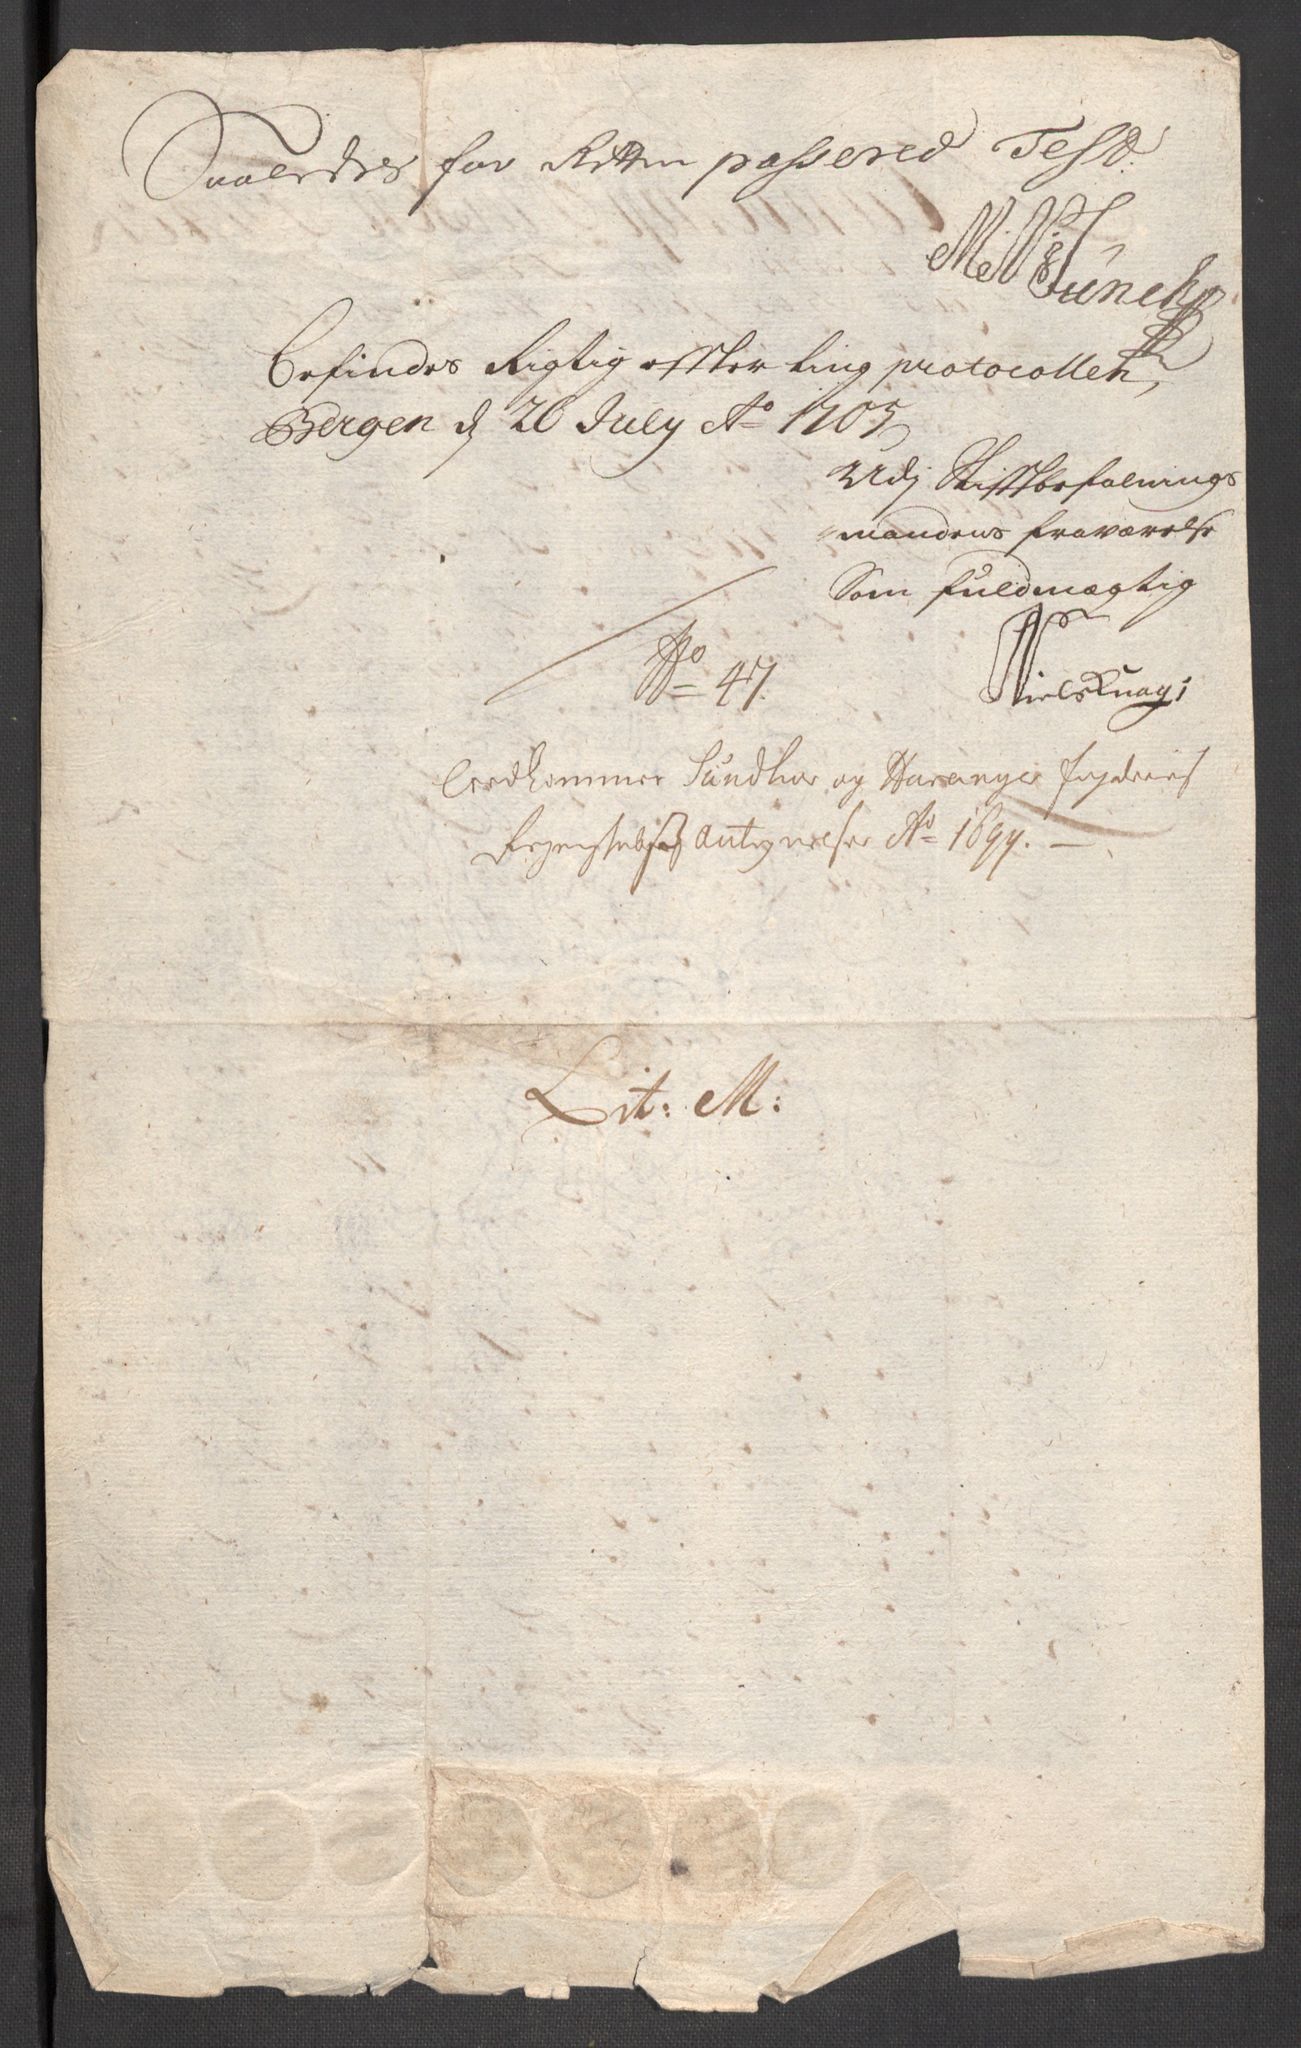 Saaledes for Retten passered Test.
Befindes Rigtig effter ting protocollen,
Bergen d 26 July Ao 1705
Udj Stifftbefalnings
mandens fraværelse
Som fuldmægtig
No 47.
Niels Knag
Vedkommer Sundhor og Hardanger fogderies
Regenskabs Antegnelser Ao 1699.
Lit: M: